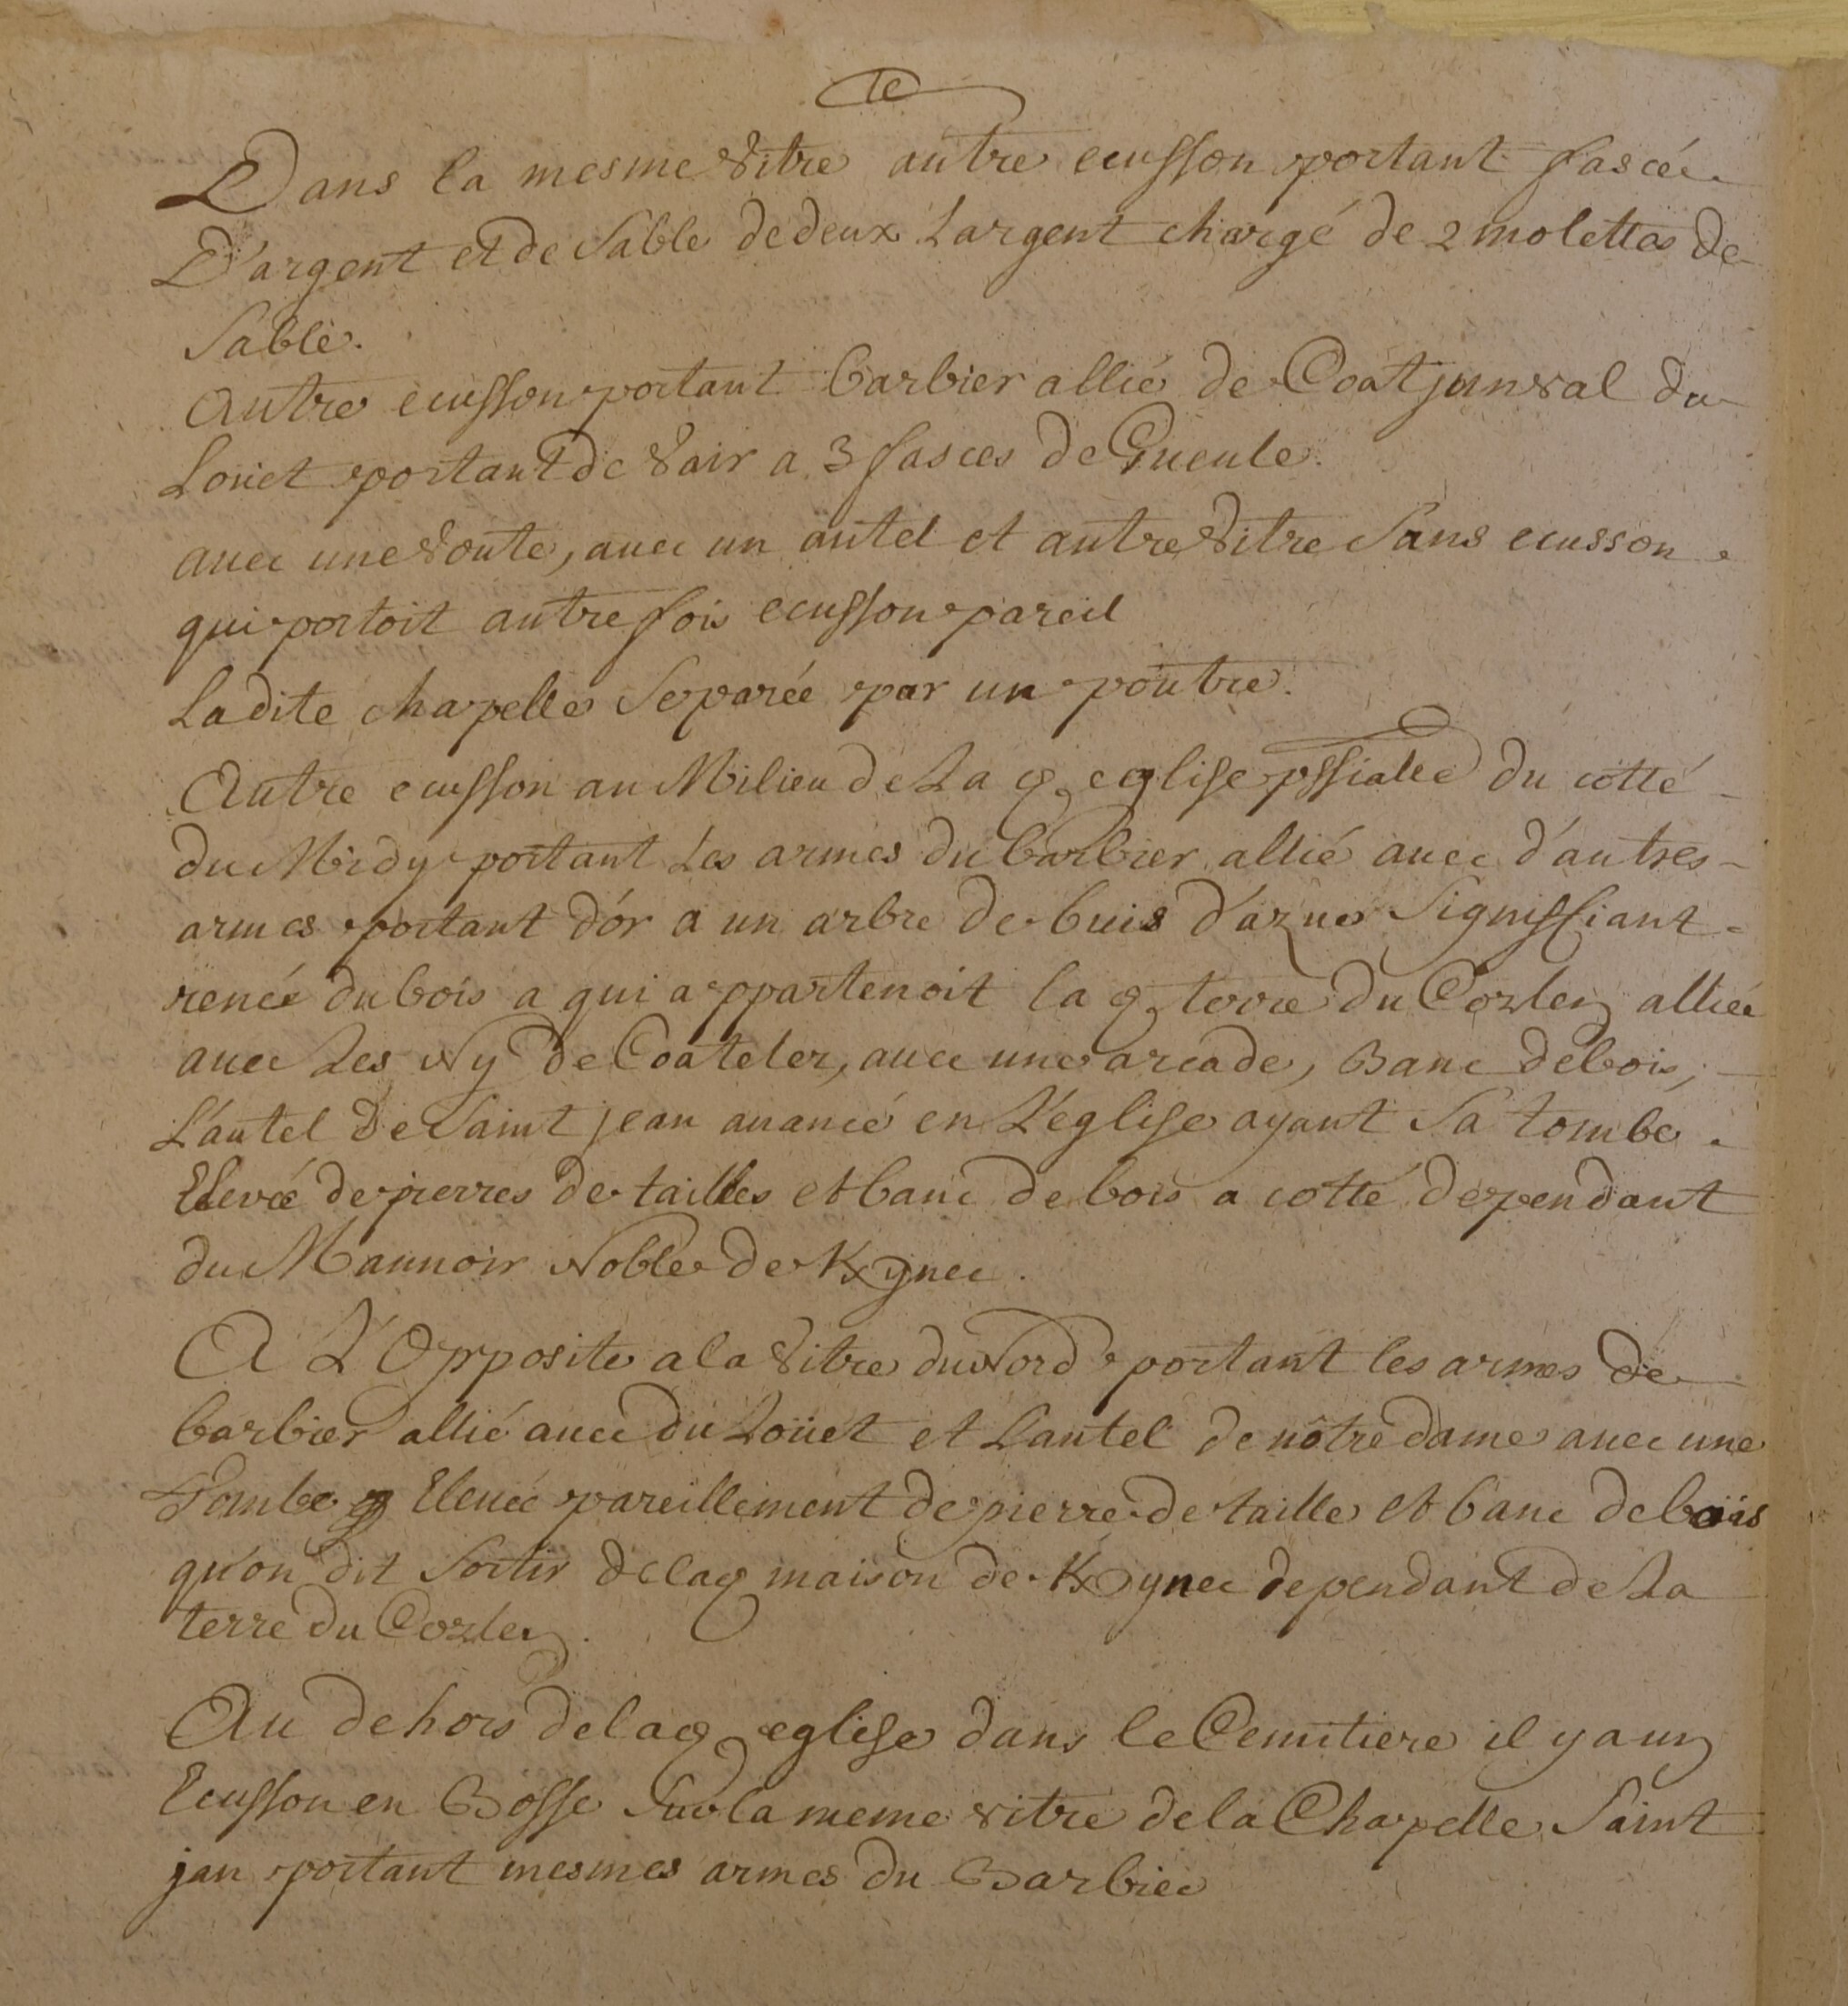 Te
Dans la mesme vitre autre ecusson portant fascée
D'argent et de Sable de deux L'argent chargé de 2 molettes de
Sable.
Autre ecusson portant barbier allié de Coatjunval du
Louet portant de vair a 3 fasces de Gueule.
avec une voute, avec un autel et autre vitre Sans ecusson
qui portoit autre fois ecusson pareil
Ladite chapelle Separée par un poutre.
Autre ecusson au Milieu de La q eglise pssialle du cotté
du Midy portant Les armes du barbier allié avec d'autres
armes portant d'or a un arbre de buis d'azue Signiffiant
renée du bois a qui appartenoit la q terre du Cozlen alliée
avec Les Ny De Coateler, avec une arcade, Banc de bois,
L'autel De Saint jean avancé en L'eglise ayant Sa tombe
Elevée de pierres de tailles et banc de bois a cotté dependant
du Mannoir Noble de Kynec.
A L'Opposite a la vitre du Nord portant les armes de
barbier allié avec du Loüet et Lautel de nôtre dame avec une
Tombe Elevée pareillement de pierre de taille et banc de bois
qu'on dit Sortir de la q maison de Kynec dependant de La
terre du Cozlen.
Au dehors de la q eglise dans le Cemitiere il y a un
Ecusson en Bosse Sur la meme vitre de la Chapelle Saint
jan portant mesmes armes du Barbier